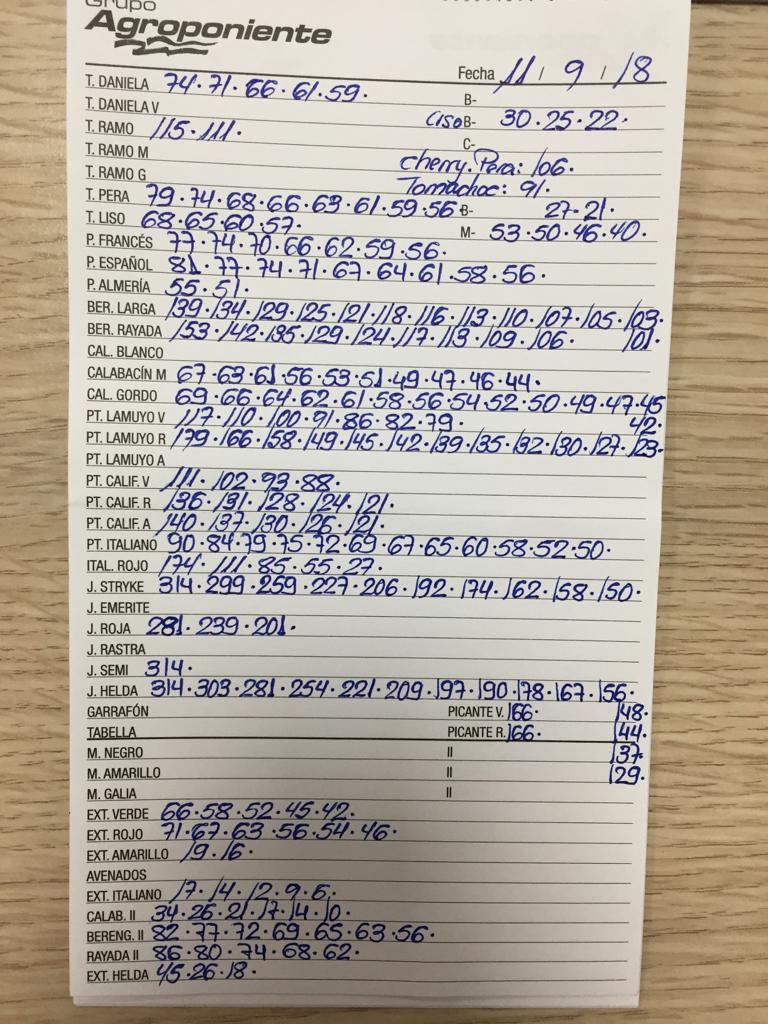 Grupo
Agroponiente
Fecha 11 / 9 / 18
T. DANIELA 74·71·66·61·59· B-
T. DANELA V LISO B- 30·25·22·
T. RAMO 115·111· C-
T. RAMO M cherry.Pera: 106·
T. RAMO G Tomachoc: 91·
T. PERA 79·74·68·66·63·61·59·56 B- 27·21·
T. LISO 68·65·60·57· M- 53·50·46·40·
P. FRANCÉS 77·74·70·66·62·59·56·
P. ESPAÑOL 81·77·74·71·67·64·61·58·56·
P. ALMERÍA 55·51·
BER. LARGA 139·134·129·125·121·118·116·113·110·107·105·103·
BER. RAYADA 153·142·135·129·124·117·113·109·106· 101·
CAL. BLANCO
CALABACÍN M 67·63·61·56·53·51·49·47·46·44·
CAL. GORDO 69·66·64·62·61·58·56·54·52·50·49·47·45
PT. LAMUYO V 117·110·100·91·86·82·79· 42·
PT. LAMUYO R 179·166·158·149·145·142·139·135·132·130·127·123·
PT. LAMUYO A
PT. CALIF. V 111·102·93·88·
PT. CALIF. R 136·131·128·124·121·
PT. CALIF. A 140·137·130·126·121·
PT. ITALIANO 90·84·79·75·72·69·67·65·60·58·52·50·
ITAL. ROJO 174·111·85·55·27·
J. STRYKE 314·299·259·227·206·192·174·162·158·150·
J. EMERITE
J. ROJA 281·239·201·
J. RASTRA
J. SEMI 314·
J. HELDA 314·303·281·254·221·209·197·190·178·167·156·
GARRAFÓN PICANTE V. 166· 148·
TABELLA PICANTE R. 166· 144·
M. NEGRO II 137·
M. AMARILLO II 129·
M. GALIA II
EXT. VERDE 66·58·52·45·42·
EXT. ROJO 71·67·63·56·54·46·
EXT. AMARILLO 19·16·
AVENADOS
EXT. ITALIANO 17·14·12·9·6·
CALAB. II 34·26·21·17·14·10·
BERENG. II 82·77·72·69·65·63·56·
RAYADA II 86·80·74·68·62·
EXT. HELDA 45·26·18·